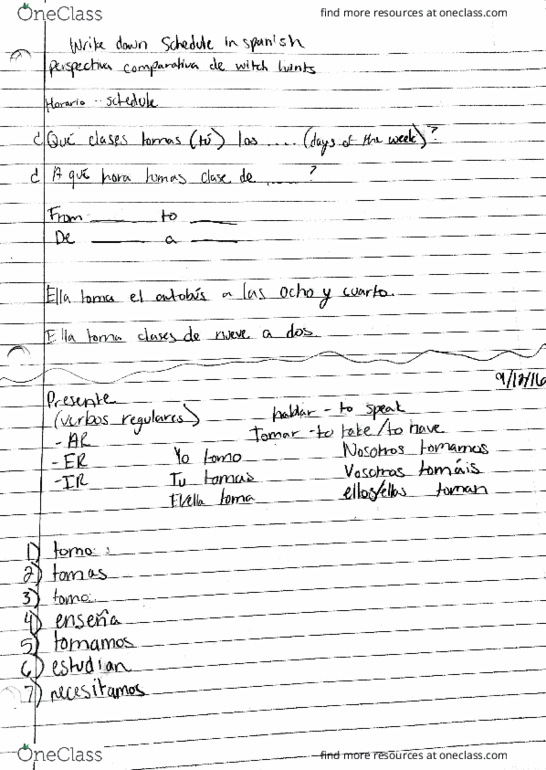 OneClass find more resources at oneclass.com
Write down Schedule in spanish
perspectiva comparativa de
Horario -- schedule
¿Qué clases tomas (tú) los .... (days of the week)?
¿A qué hora tomas clase de ....... ?
From ______ to ______
De ______ a ______
Ella toma el autobús a las ocho y cuarto.
Ella toma clases de nueve a dos.
9/12/16
Presente
(verbos regulares)
hablar - to speak
- AR
Tomar - to take/to have
- ER Yo tomo Nosotros tomamos
- IR Tu tomas Vosotros tomáis
El/ella toma ellos/ellas toman
1) tomo
2) tomas
3) tomo
4) enseña
5) tomamos
6) estudian
7) necesitamos
OneClass find more resources at oneclass.com